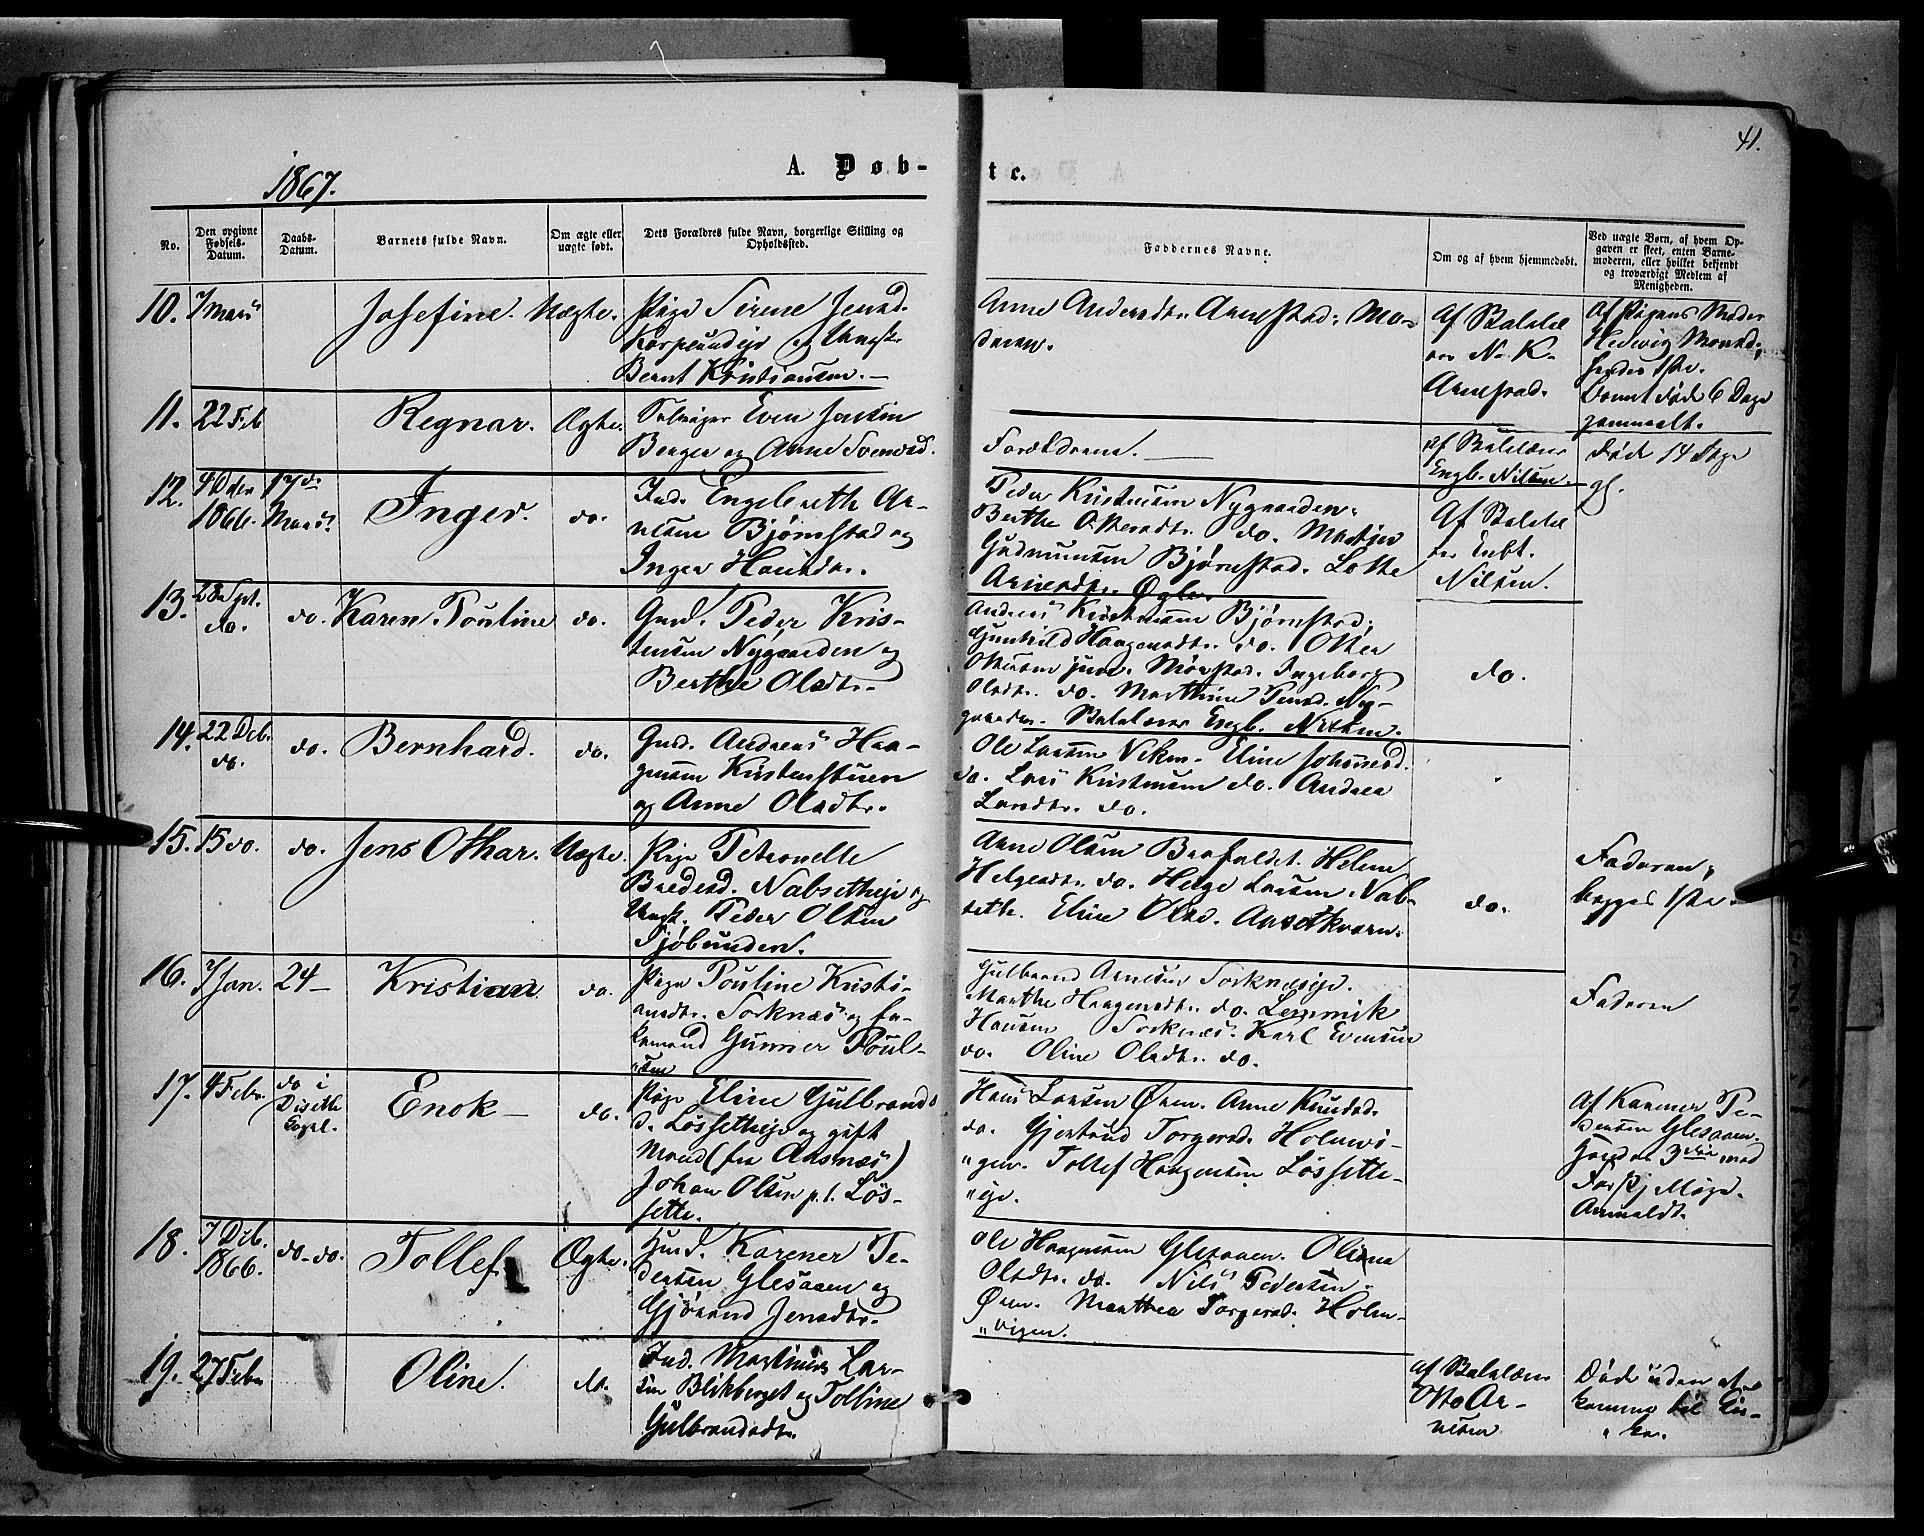 41.
1867.
A. Døb-
te.
No.
Den opgivne Fødsels-Datum.
Daabs-Datum.
Barnets fulde Navn.
Om ægte eller uægte født.
Dets Forældres fulde Navn, borgerlige Stilling og Opholdssted.
Faddernes Navne.
Om og af hvem hjemmedøbt.
Ved uægte Børn, af hvem Op-
gaven er skeet, enten Barne-
moderen, eller hvilket bekjendt
og troværdigt Medlem af
Menigheden.
10. 7 Mars Josefine. Uægte. Pige Sirene Jensd.
og Ungk.
Bernt Kristiansen.
Anne Andersdtr. Arnestad. Mo-
deren.
Af Skolelæ
rer N. K.
Arnestad.
Af Pigens Moder
Hedevig
Barnet død 6 Dage
gammelt.
11. 22 Feb Regnar. Ægte. Selveier Even
Berger og Anne Svensd.
Forældrene.
af Skolelærer
Engb. Nilsen.
Død 14 Dage
gl.
12. 4 Dcbr 1866. 17de Mars. Inger. do. Ind. Engebreth Ar-
nesen Bjørnstad og
Inger Hansdtr.
Peder Kristensen Nygaarden.
Berthe Olsdtr. do. Martin
Gudmunsen Bjørnstad. Lotte
Arnesdtr. Øgle.
Af Skolelæ
rer Enbt.
Nilsen.
13. 28 Spt. do. do. Karen Pouline do. Gmd. Peder Kris-
tensen Nygaarden og
Berthe Olsdtr.
Andreas Kristensen Bjørnstad.
Gunhild Haagensdtr. do. Otter
Ottersen jun. Mørstad. Ingeborg
Olsdtr. do. Marthine Ny-
gaarden. Skolelærer Engb. Nilsen.
do.
14. 22 Deb. do. do. Bernhard. do. Gmd. Andreas Haa-
gensen Kristenstuen
og Anne Olsdtr.
Ole Larsen Viken. Eline Johannesd.
do. Lars Kristensen do. Andrea
Larsdtr. do.
15. 15 do. do. Jens Othar. Uægte. Pige Petronelle
Nabsetheje og
Ungk. Peder Olsen
Sjøbunden.
Arne Olsen Braskaldet. Helene
Helgesdtr. do. Helge Larsen Nab-
seth. Eline Olsd. Ansetkværn.
do.
Faderen,
begges 1ste
16. 7 Jan. 24 - Kristian do. Pige Pouline Kristi-
ansdtr. Sorknæs og
Gunner Poul-
sen
Gulbrand Arnesen Sorknæseje.
Marthe Haagensdtr. do. Lemmik
Hansen Sorknæs. Karl Evensen
do. Oline Olsdtr. do.
Faderen
17. 4 Febr. do i Diseth Capel. Enok - do. Pige Eline Gulbrands
d. Løssetheje og gift
Mand (fra Aasnæs)
Johan Olsen p. t. Løs-
sette.
Hans Larsen Øren. Anne Knudsd.
do. Gjertrud Torgersd. Holmvi-
"gen. Tollef Haagensen Løssette-
"eje.
Af Karener Pe-
dersen Glesaaen.
Anmeldt.
18. 7 Deb. 1866. do. do. Tollef Ægte. Hmd. Karener Pe-
dersen Glesaaen og
Gjørand Jensdtr.
Ole Haagensen Glesaaen. Oliane
Olsdtr. do. Nils Pedersen
Øren. Marthea Torgersd. Holm-
"vigen.
19. 27 Febr Oline. do. Ind. Martinus Lar-
sen Blikberget og Tolline
Gulbrandsdtr.
af Skolelærer
Otto Ar-
nesen
Død uden at
komme til Kir-
"ke.